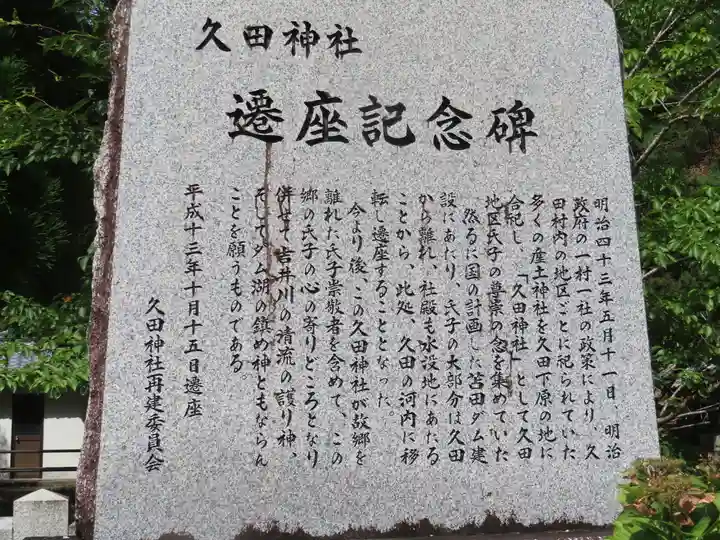 久田神社
遷座記念碑
明治四十三年五月十一日、明治
政府の一村一社の政策により、久
田村内の地区ごとに祀られていた
多くの産土神社を久田下原の地に
合祀し、「久田神社」として久田
地区氏子の尊崇の念を集めていた
然るに国の計画した苫田ダム建
設にあたり、氏子の大部分は久田
から離れ、社殿も水没地にあたる
ことから、此処、久田の河内に移
転し遷座することとなった。
今より後、この久田神社が故郷を
離れた氏子崇敬者を含めて、この
郷の氏子の心の寄りどころとなり
併せて吉井川の清流の護り神、
そしてダム湖の鎮め神ともならん
ことを願うものである。
平成十三年十月十五日遷座
久田神社再建委員会